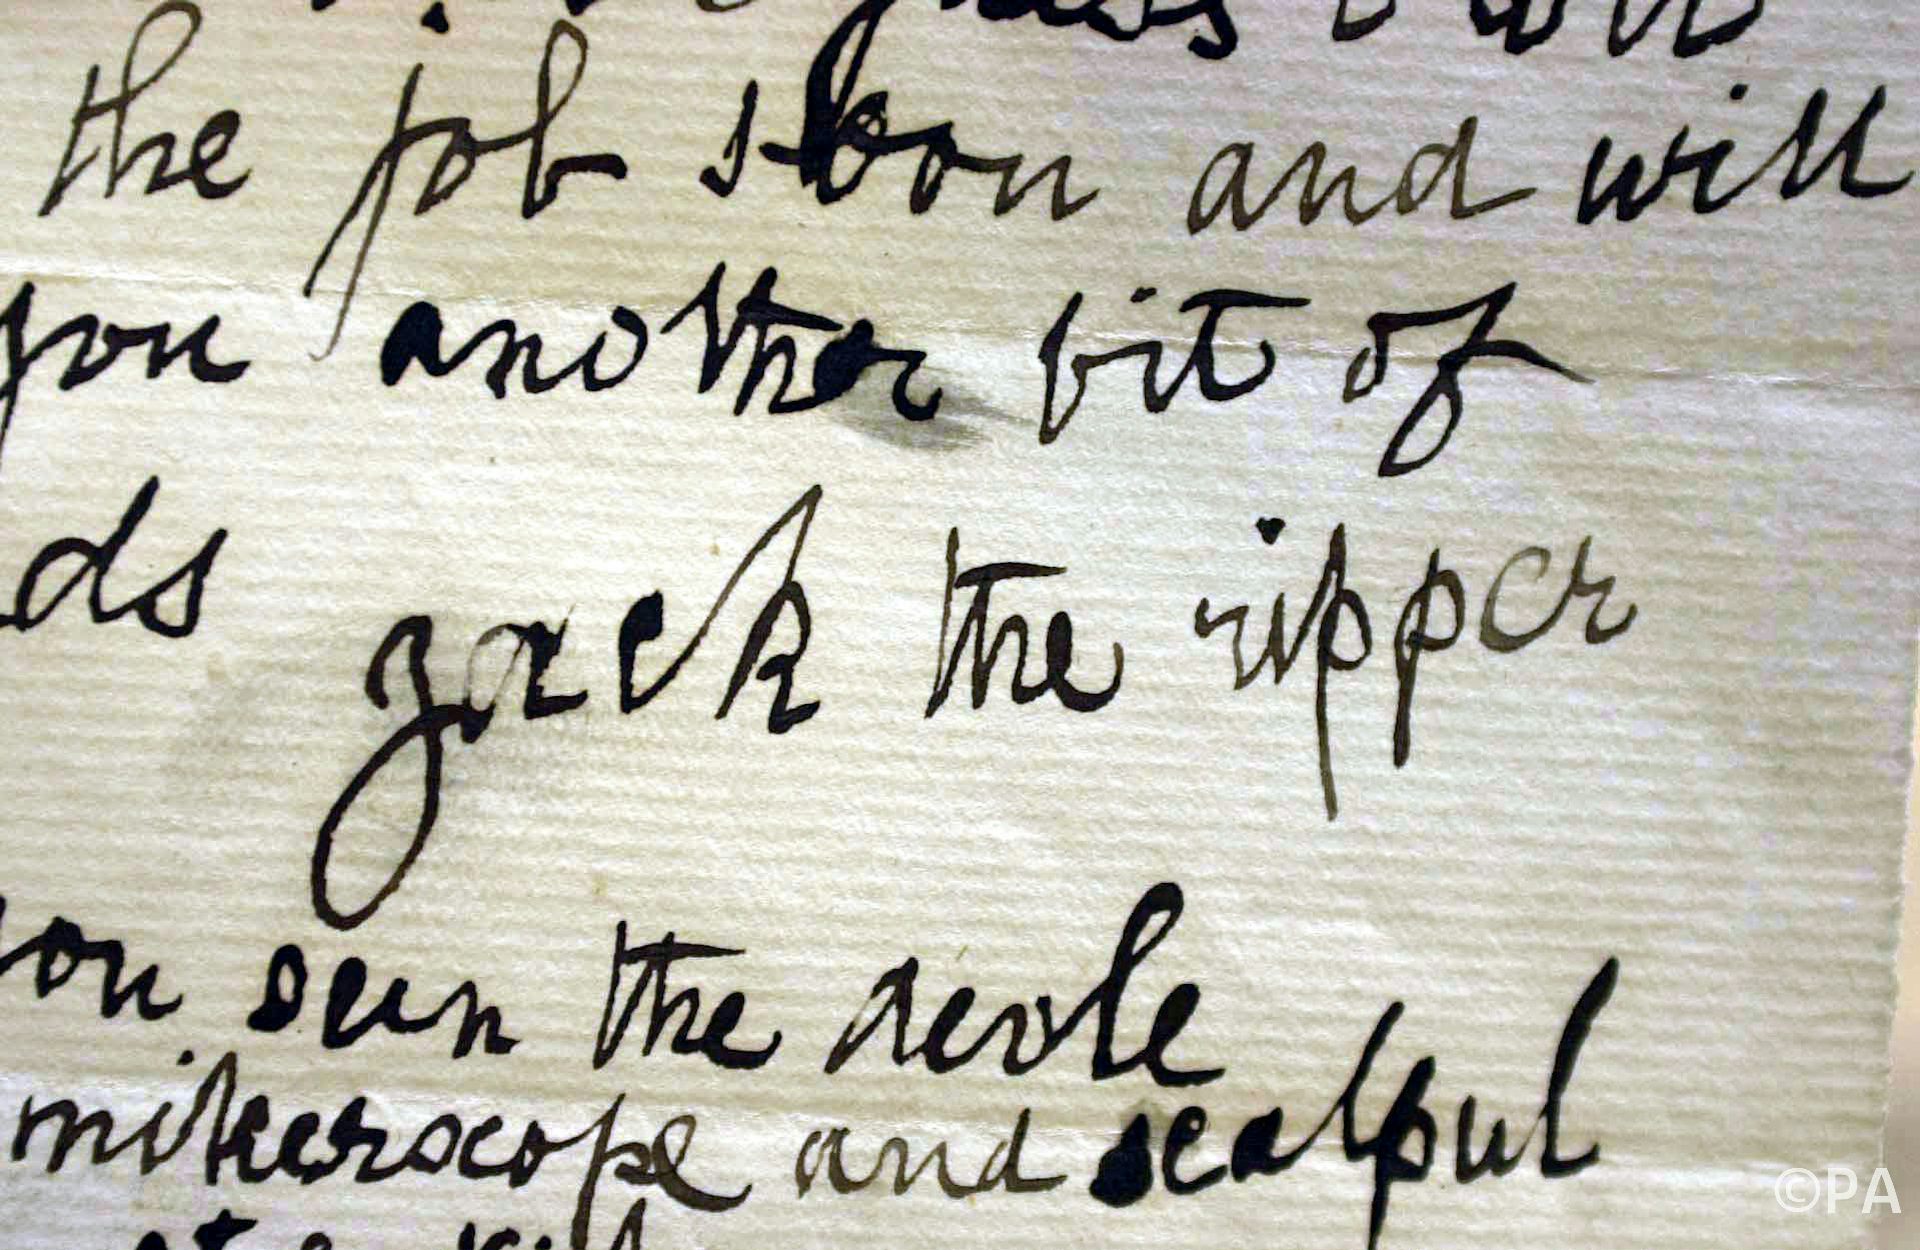 the job soon and will
you another bit of
ds Jack the ripper
you seen the devle
mikerscope and scalpul
©PA